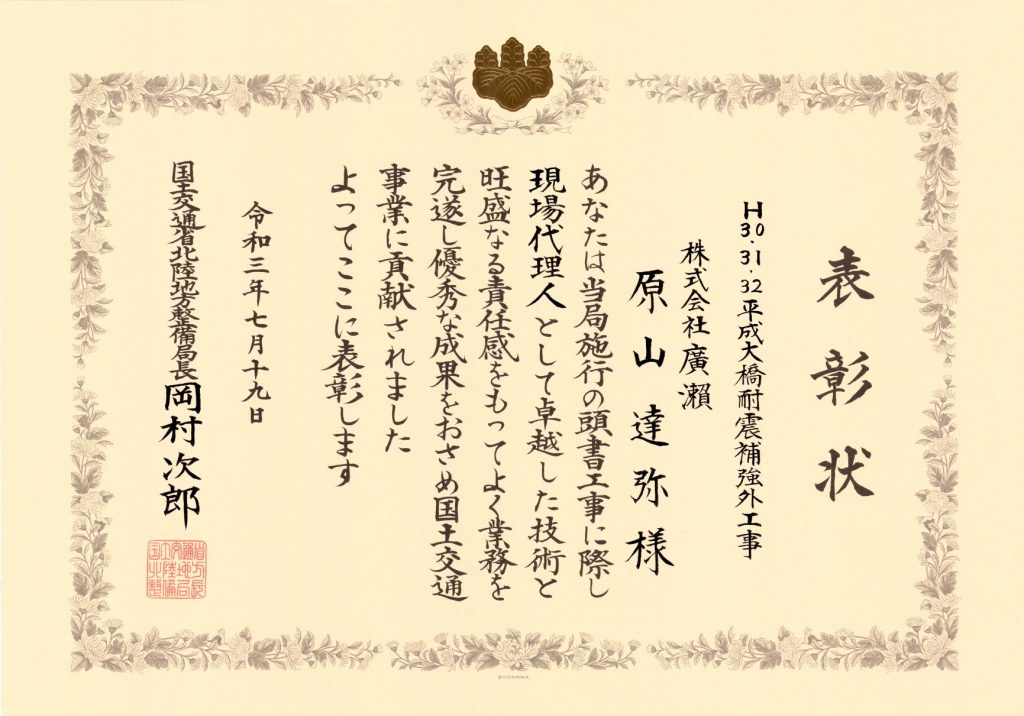 表彰状
H30・31・32平成大橋耐震補強外工事
株式会社廣瀨
原山達弥様
あなたは当局施行の頭書工事に際し
現場代理人として卓越した技術と
旺盛なる責任感をもってよく業務を
完遂し優秀な成果をおさめ国土交通
事業に貢献されました
よってここに表彰します
令和三年七月十九日
国土交通省北陸地方整備局長 岡村次郎